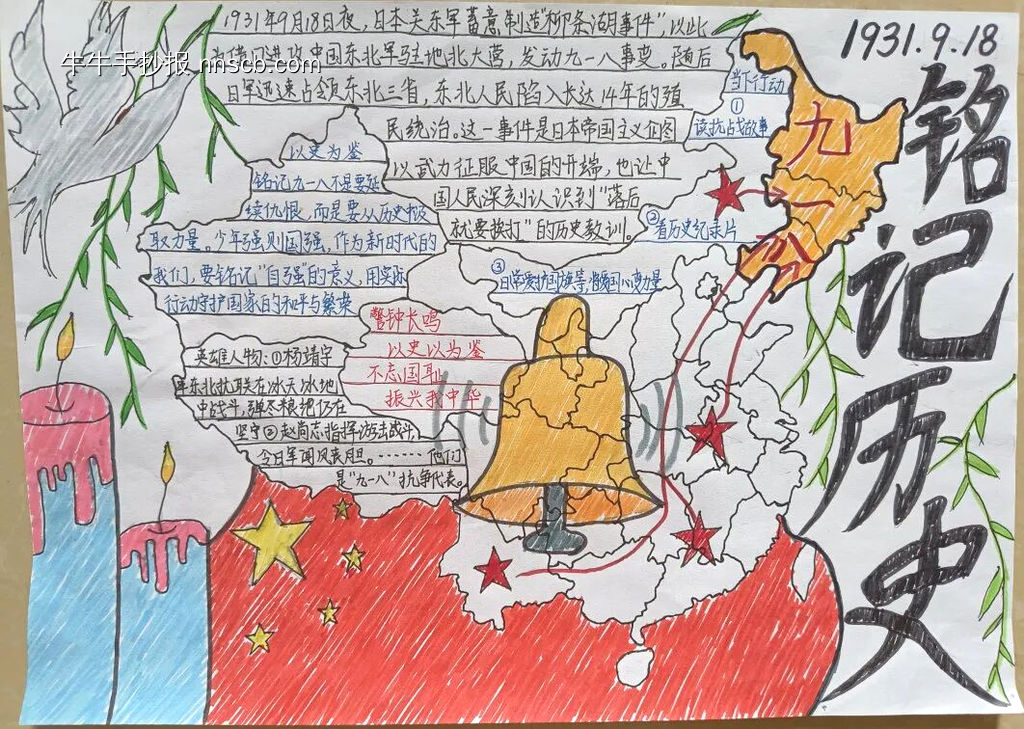 1931年9月18日夜，日本关东军蓄意制造"柳条湖事件"，以此
为借口进攻中国东北军驻地北大营，发动九一八事变。随后
日军迅速占领东北三省，东北人民陷入长达14年的殖
民统治。这一事件是日本帝国主义企图
以武力征服中国的开端，也让中
国人民深刻认识到"落后
就要挨打"的历史教训。
牛牛手抄报 nnscb.com
1931.9.18
铭记历史
九一八
当下行动
①
读抗战故事
②看历史纪录片
③
日常爱护国旗等，将爱国心变力量
以史为鉴
铭记九一八不是要延
续仇恨，而是要从历史中汲
取力量。少年强则国强，作为新时代的
我们，要铭记"自强"的意义，用实际
行动守护国家的和平与繁荣
警钟长鸣
以史以为鉴
不忘国耻
振兴我中华
英雄人物：①杨靖宇
率东北抗联在冰天冰地
中战斗，弹尽粮绝仍在
坚守②赵尚志指挥游击战斗，
令日军闻风丧胆。……他们
是"九一八"抗争代表。